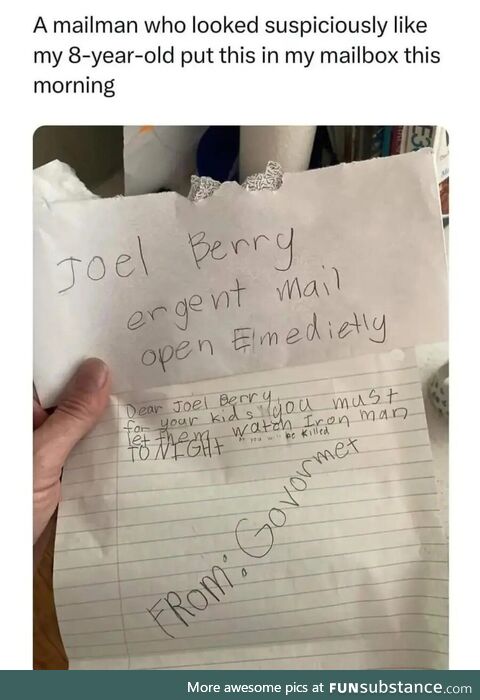 A mailman who looked suspiciously like
my 8-year-old put this in my mailbox this
morning
Joel Berry
ergent mail
open Emedietly
Dear Joel Berry
for your kids you must
let them watch Iron man
TONIGHt or you will be killed
FRom: Govormet
More awesome pics at FUNsubstance.com